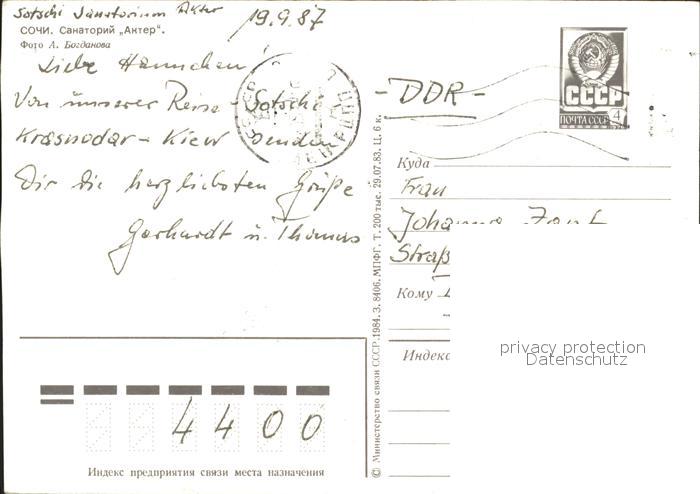 Sotschi Sanatorium Akter 19.9.87
СОЧИ. Санаторий „Актер“.
Фото А. Богданова
Liebe Hannchen!
Von unserer Reise - Sotschi
Krasnodar - Kiew senden
Dir die herzliebsten Grüße
Gerhardt u. Thomas
- DDR -
СССР
ПОЧТА СССР 4
Куда
Frau
Johanna
Straß
Кому
Индекс
privacy protection
Datenschutz
4400
Индекс предприятия связи места назначения
© Министерство связи СССР. 1984. З. 8406. МПФГ. Т. 200 тыс. 29.07.83. Ц. 6 к.